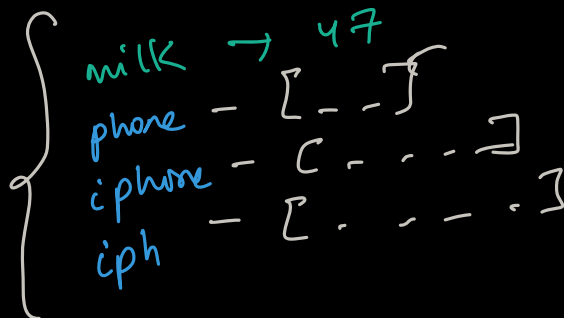 milk → 47
phone - [ - - ]
iphone - [ . . . - ]
iph - [ . . - . ]